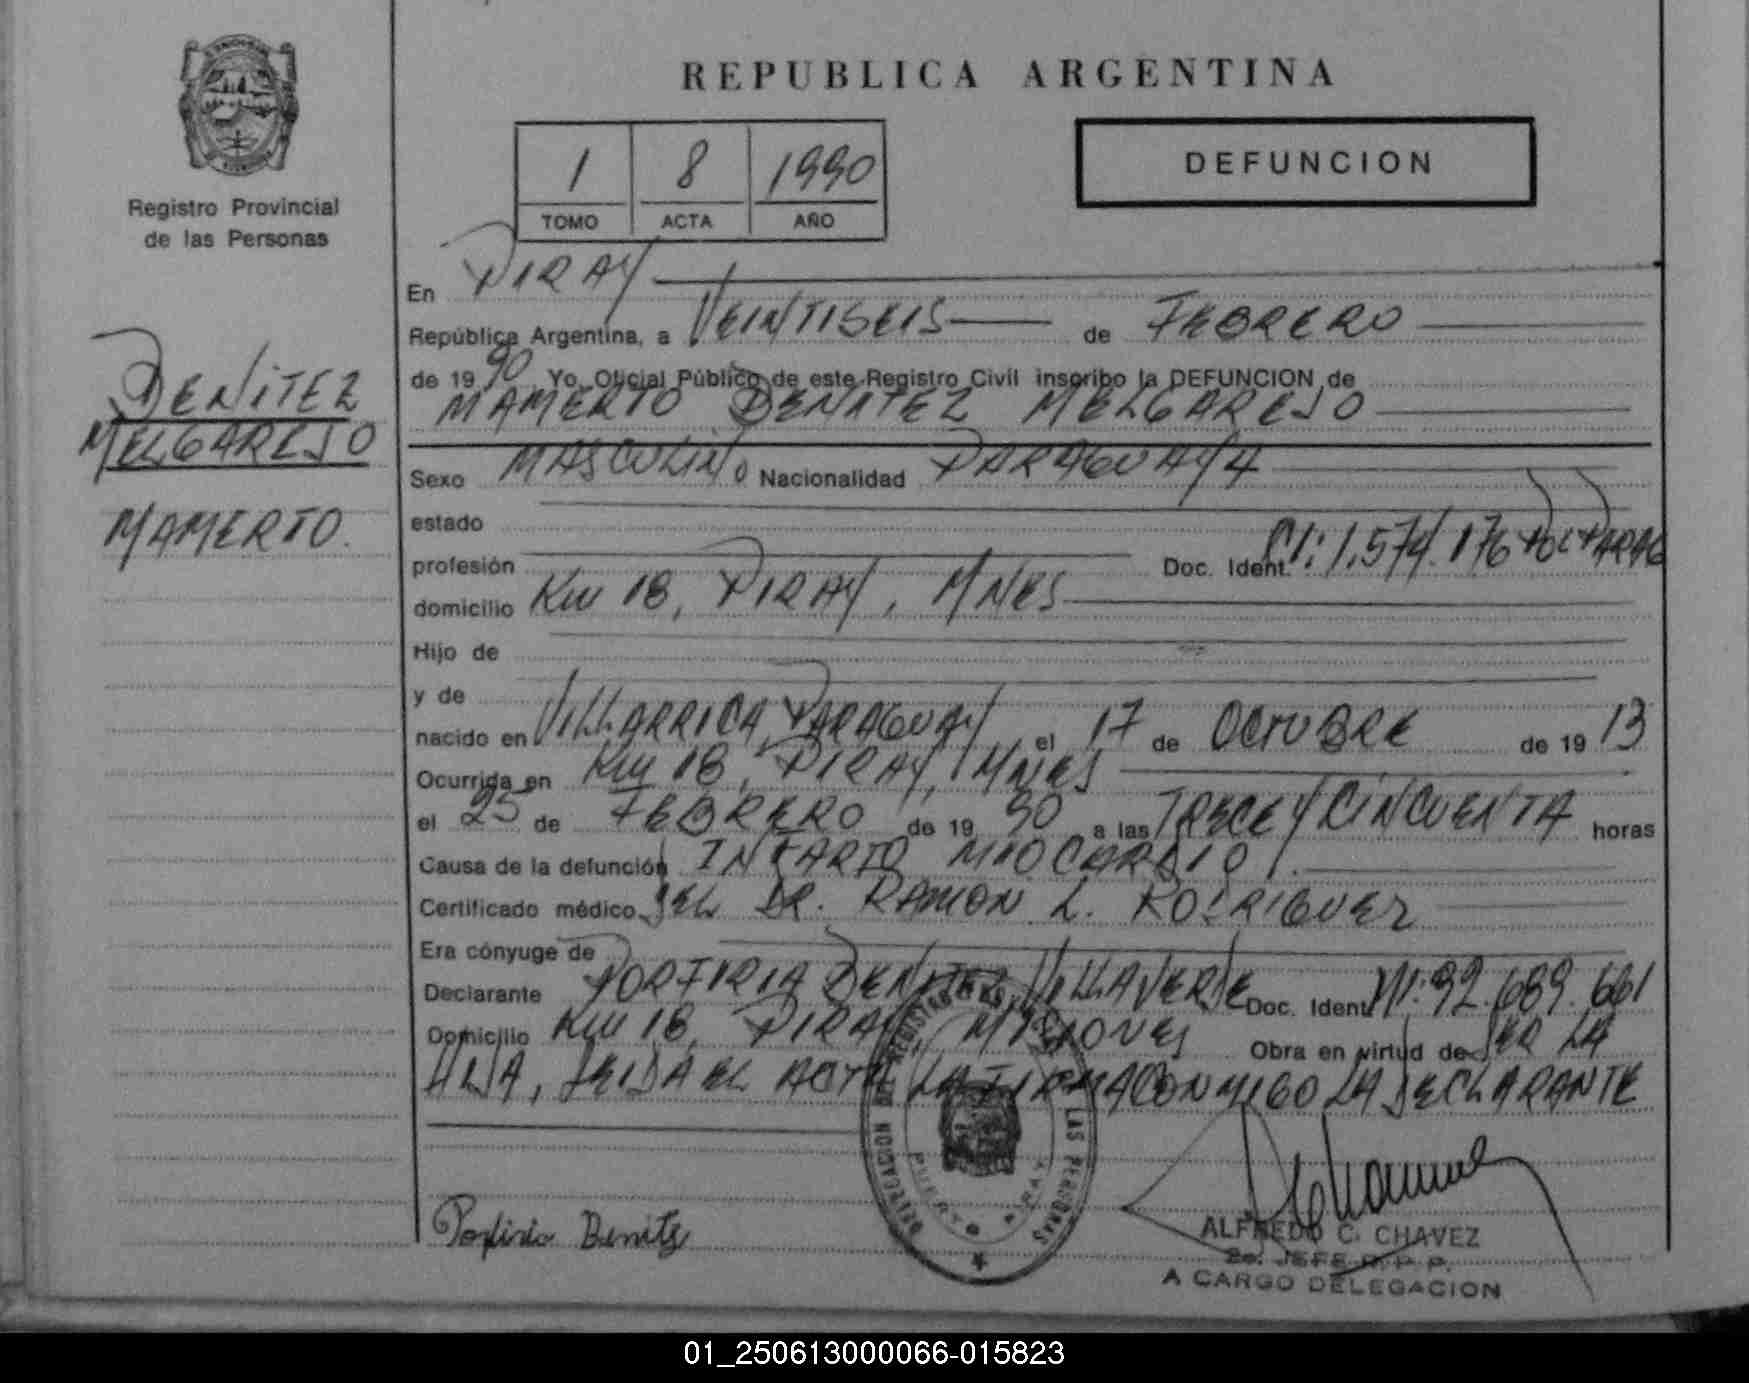 REPUBLICA ARGENTINA
1 8 1990
TOMO ACTA AÑO
DEFUNCION
Registro Provincial
de las Personas
BENITEZ
MELGAREJO
MAMERTO.
En PIRAY
República Argentina, a VEINTISEIS de FEBRERO
de 19 90, Yo, Oficial Público de este Registro Civil inscribo la DEFUNCION de
MAMERTO BENITEZ MELGAREJO
Sexo MASCULINO Nacionalidad PARAGUAYA
estado
profesión Doc. Ident. CI: 1.574.176 POL PARAG
domicilio Km 18, PIRAY, MNES
Hijo de
y de
nacido en VILLARRICA, PARAGUAY el 17 de OCTUBRE de 19 13
Ocurrida en Km 18, PIRAY, MNES
el 25 de FEBRERO de 19 90 a las TRECE Y CINCUENTA horas
Causa de la defunción INFARTO MIOCARDIO
Certificado médico DEL DR. RAMON L. RODRIGUEZ
Era cónyuge de
Declarante PORFIRIA BENITEZ VILLAVERDE Doc. Ident. NI: 92.689.661
Domicilio Km 18, PIRAY, MISIONES Obra en virtud de SER LA
HIJA, LEIDA EL ACTA LA FIRMA CONMIGO LA DECLARANTE
DELEGACION DEL REGISTRO LAS PERSONAS
PUERTO PIRAY
Porfiria Benitez
ALFREDO C. CHAVEZ
2o. JEFE R. P. P.
A CARGO DELEGACION
01_250613000066-015823